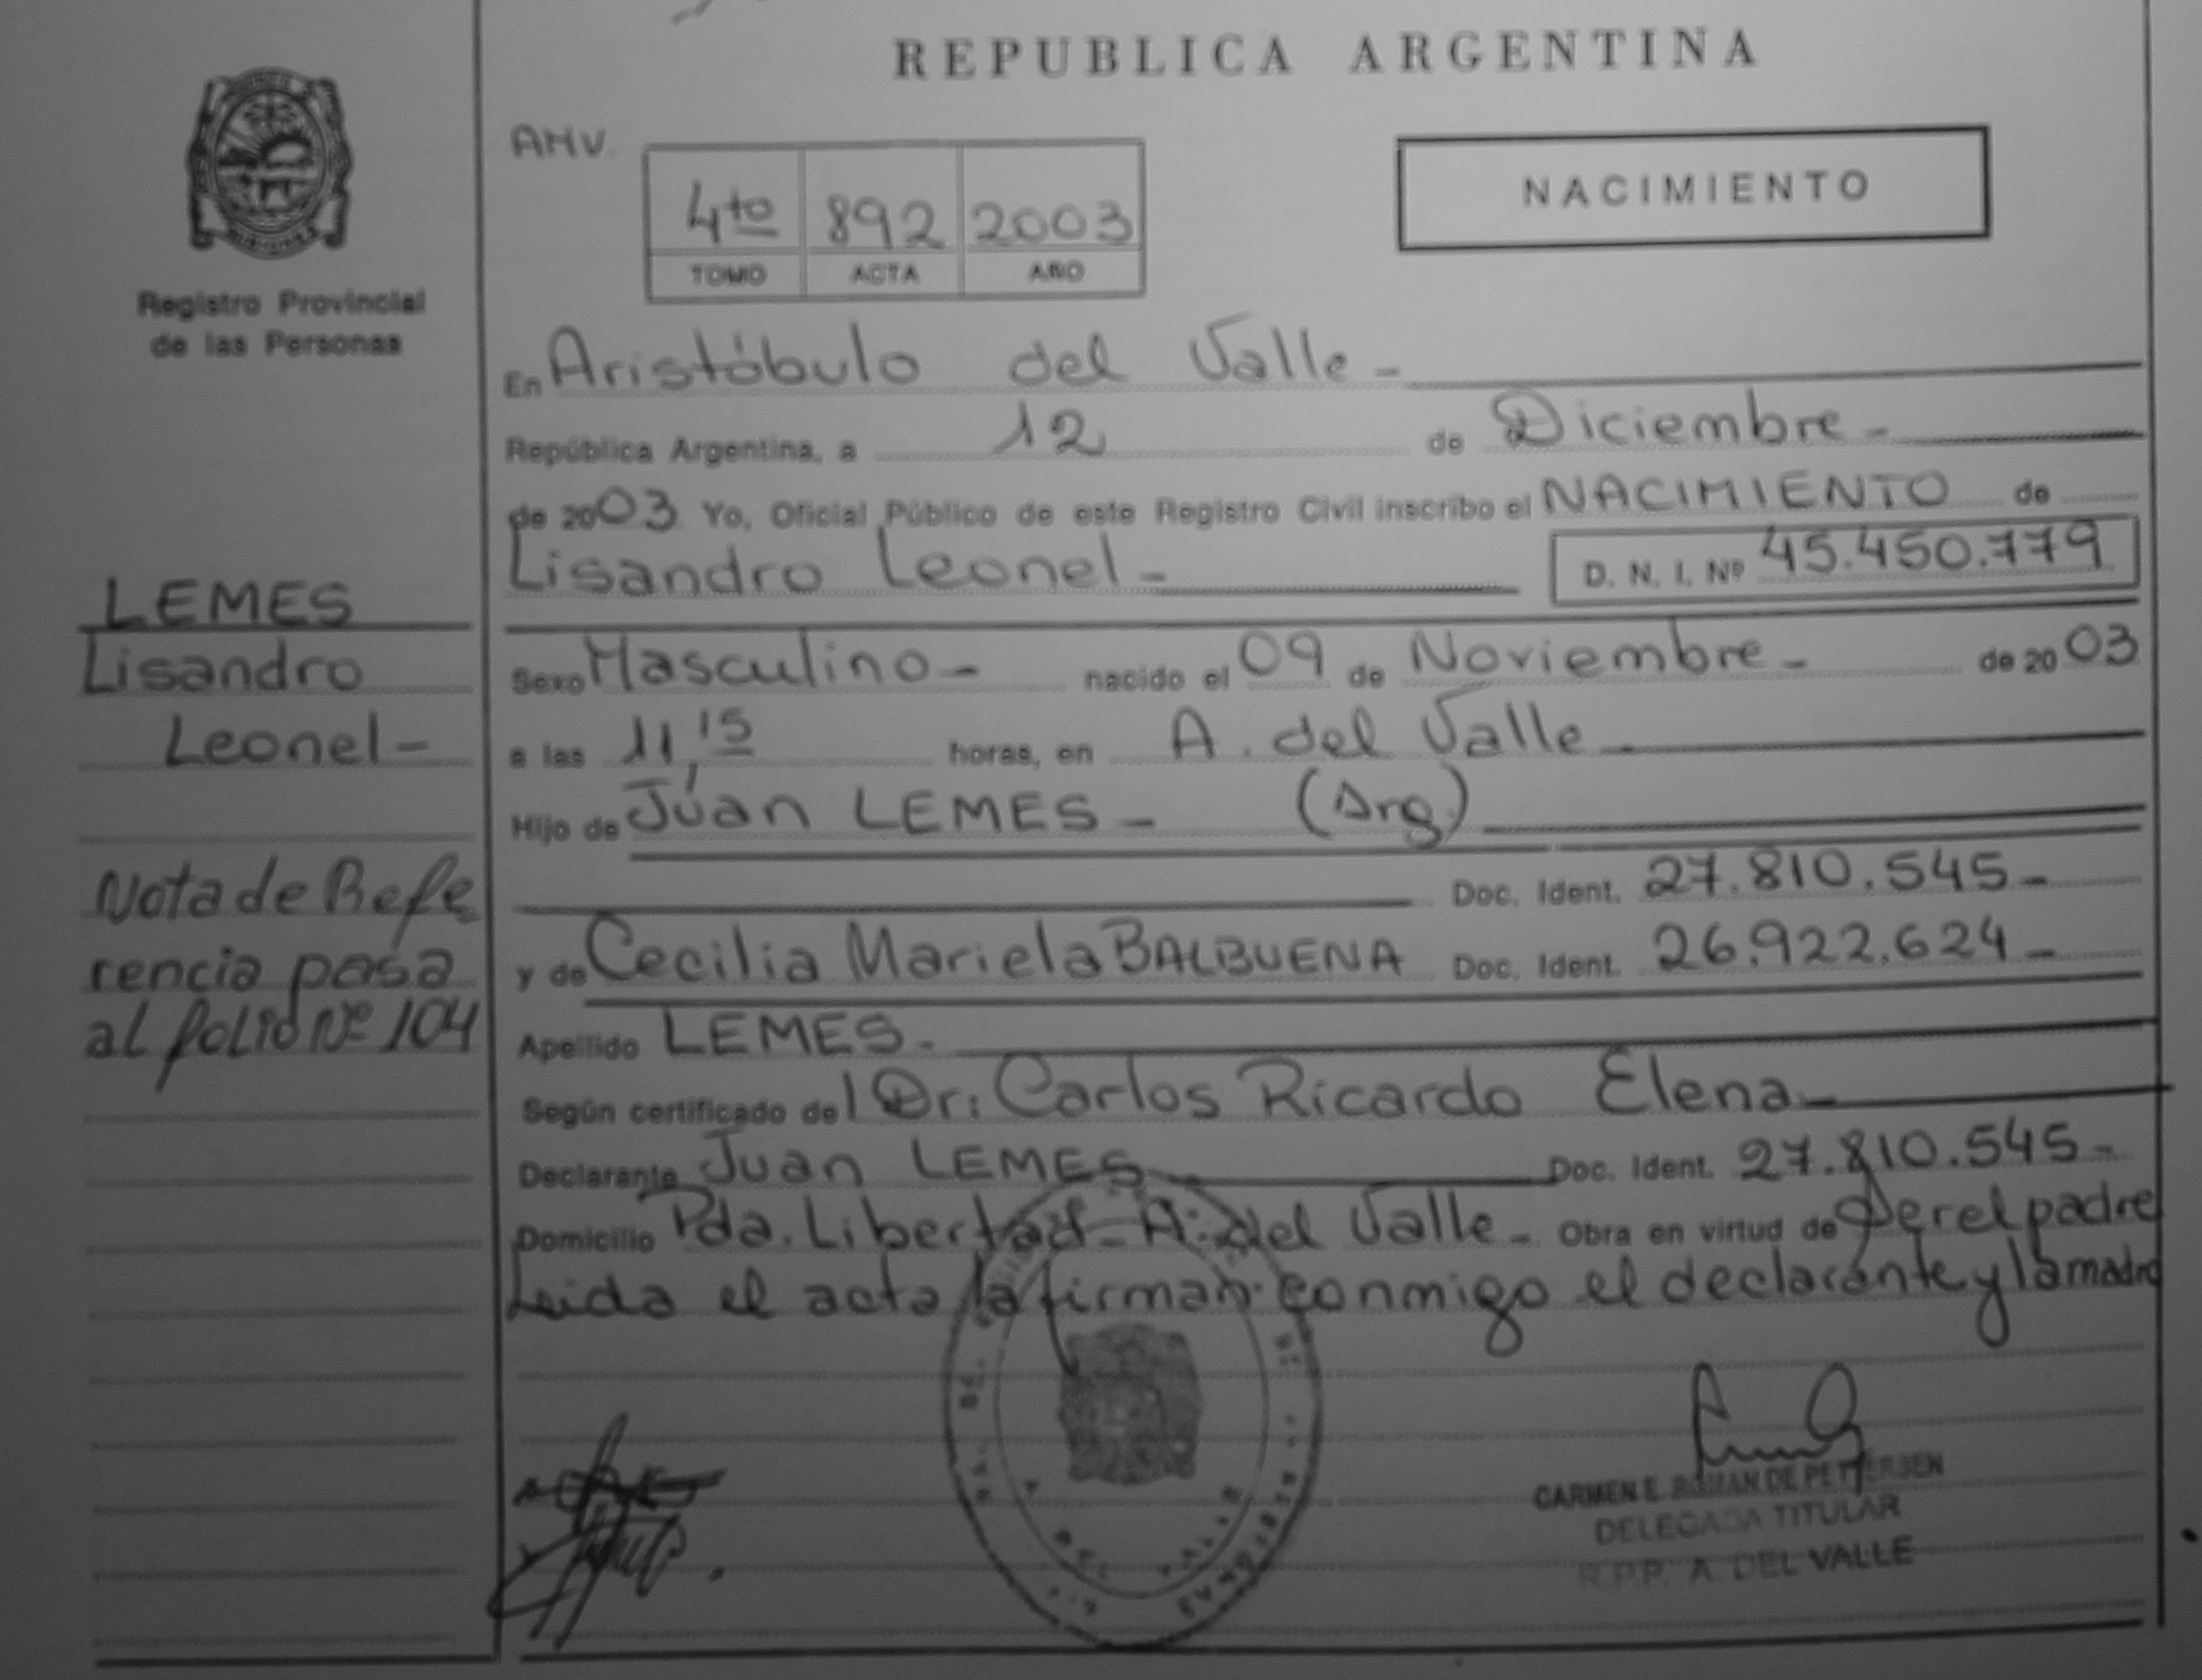 REPUBLICA ARGENTINA
AMV.
4to 892 2003
TOMO ACTA AÑO
NACIMIENTO
Registro Provincial
de las Personas
En Aristóbulo del Valle -
República Argentina, a 12 de Diciembre -
de 2003 Yo, Oficial Público de este Registro Civil inscribo el NACIMIENTO de
Lisandro Leonel - D. N. I. Nº 45.450.779
Sexo Masculino - nacido el 09 de Noviembre - de 2003
a las 11,15 horas, en A. del Valle -
Hijo de Júan LEMES - (Arg)
Doc. Ident. 27.810.545 -
y de Cecilia Mariela BALBUENA Doc. Ident. 26.922.624 -
Apellido LEMES -
Según certificado del Dr: Carlos Ricardo Elena -
Declarante Juan LEMES Doc. Ident. 27.810.545 -
Domicilio Pda. Libertad - A. del Valle - Obra en virtud de Ser el padre
Leida el acta la firman conmigo el declarante y la madre
LEMES
Lisandro
Leonel -
Nota de Refe
rencia pasa
al folio Nº 104
CARMEN E. ROMAN DE PETTERSEN
DELEGADA TITULAR
R.P.P. A. DEL VALLE